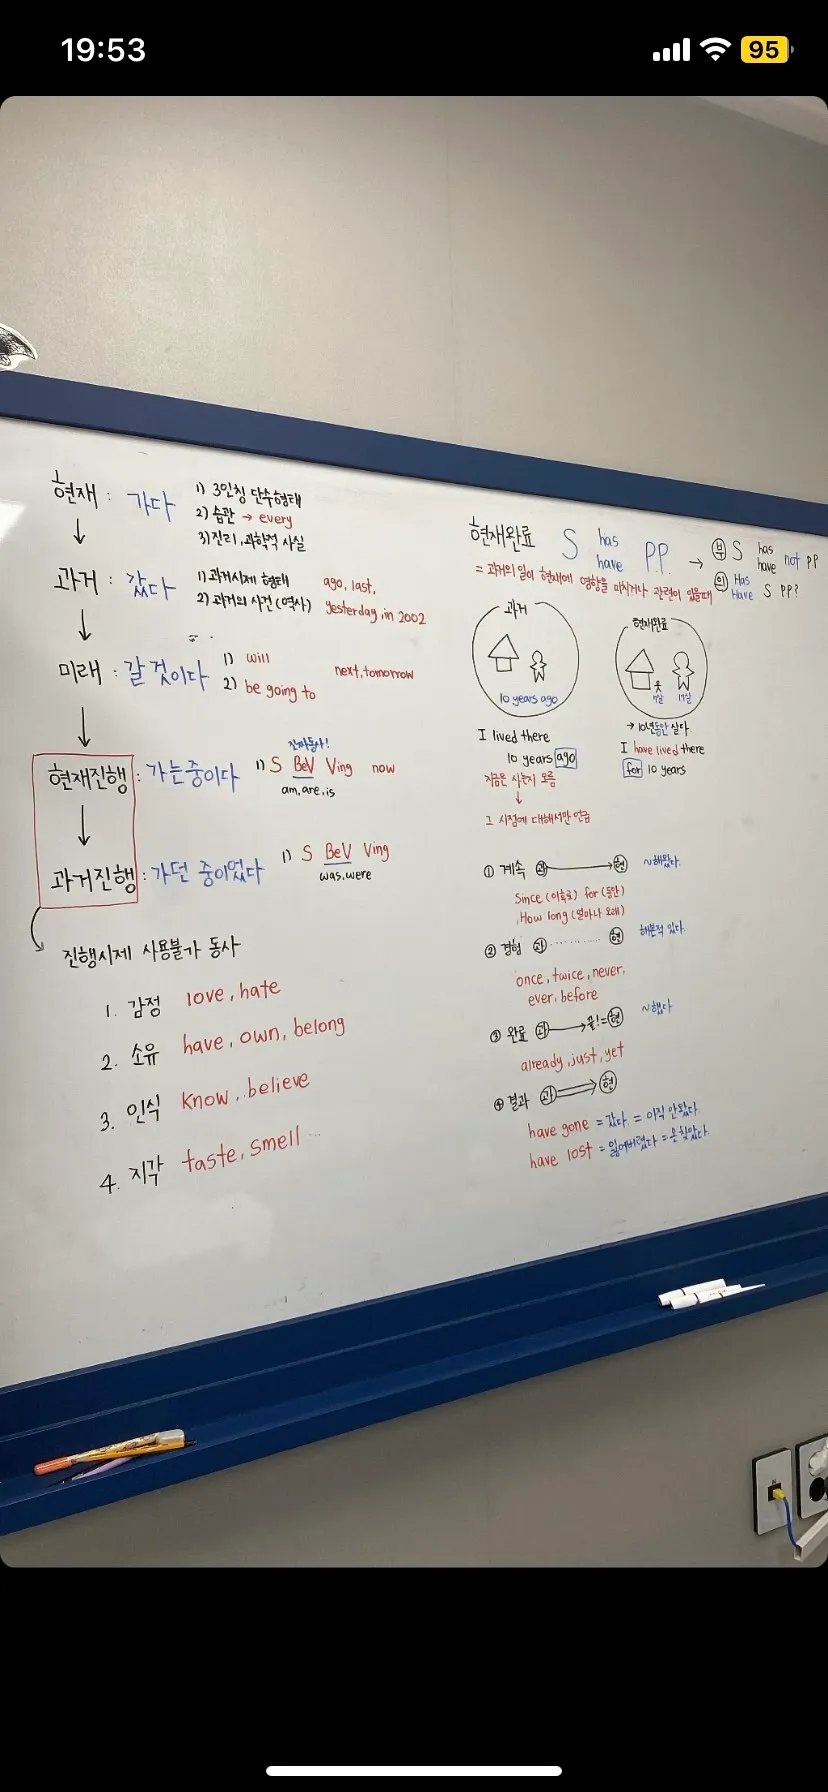 19:53
95
현재 : 가다
1) 3인칭 단수형태
2) 습관 → every
3) 진리, 과학적 사실
↓
과거 : 갔다
1) 과거시제 형태
2) 과거의 사건 (역사)
ago, last,
yesterday, in 2002
↓
미래 : 갈 것이다
1) will
2) be going to
next, tomorrow
↓
현재진행 : 가는중이다
진짜동사!
1) S BeV Ving now
am, are, is
↓
과거진행 : 가던 중이었다
1) S BeV Ving
was, were
진행시제 사용불가 동사
1. 감정 love, hate
2. 소유 have, own, belong
3. 인식 know, believe
4. 지각 taste, smell ...
현재완료 S has have PP →
부 S has have not PP
의 Has Have S PP?
= 과거의 일이 현재에 영향을 미치거나 관련이 있을때
과거
10 years ago
현재완료
7살 17살
I lived there
10 years ago
지금은 사는지 모름
↓
그 시점에 대해서만 언급
→ 10년동안 살다
I have lived there
for 10 years
① 계속 과 → 현 ~해왔다.
Since (이후로) for (동안)
, How long (얼마나 오래)
② 경험 과 ........ 현 해본적 있다.
once, twice, never,
ever, before
③ 완료 과 → 끝!=현 ~했다
already, just, yet
④ 결과 과 ⇒ 현
have gone = 갔다. = 아직 안왔다.
have lost = 잃어버렸다 = 못찾았다.